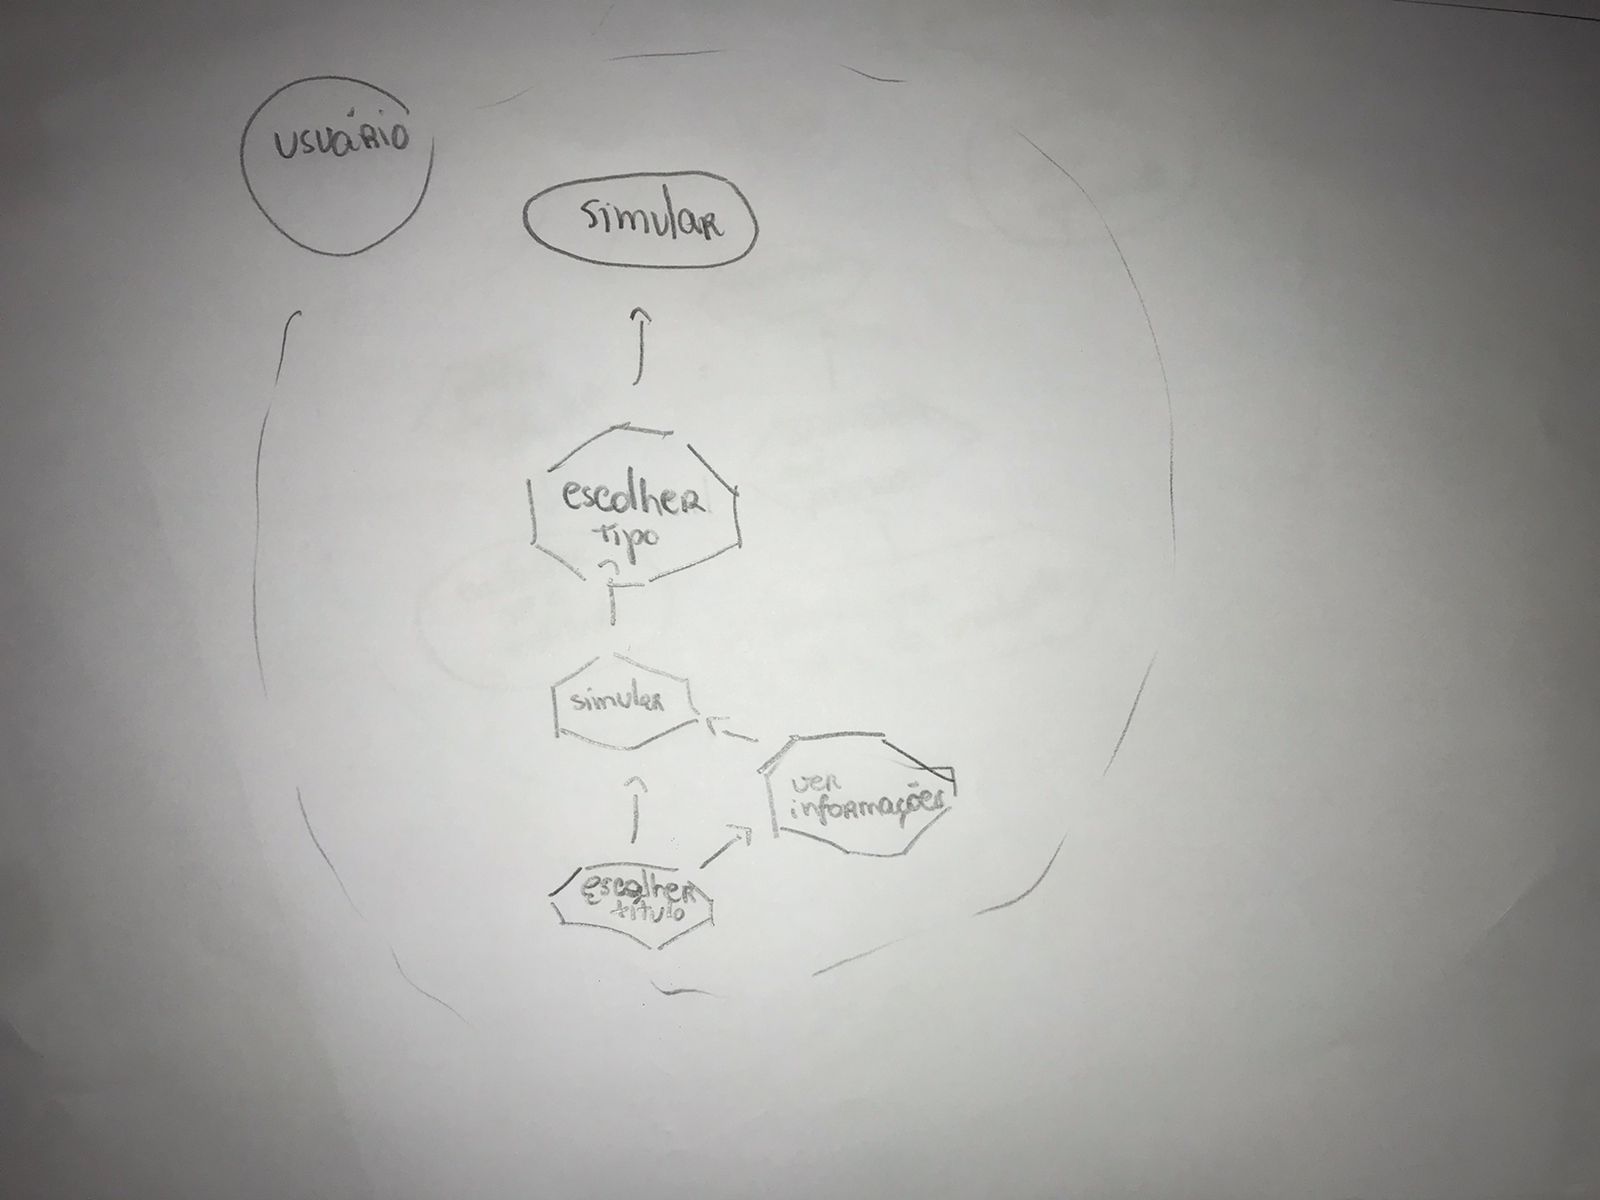 usuário
simular
escolher
tipo
simular
ver
informações
escolher
título